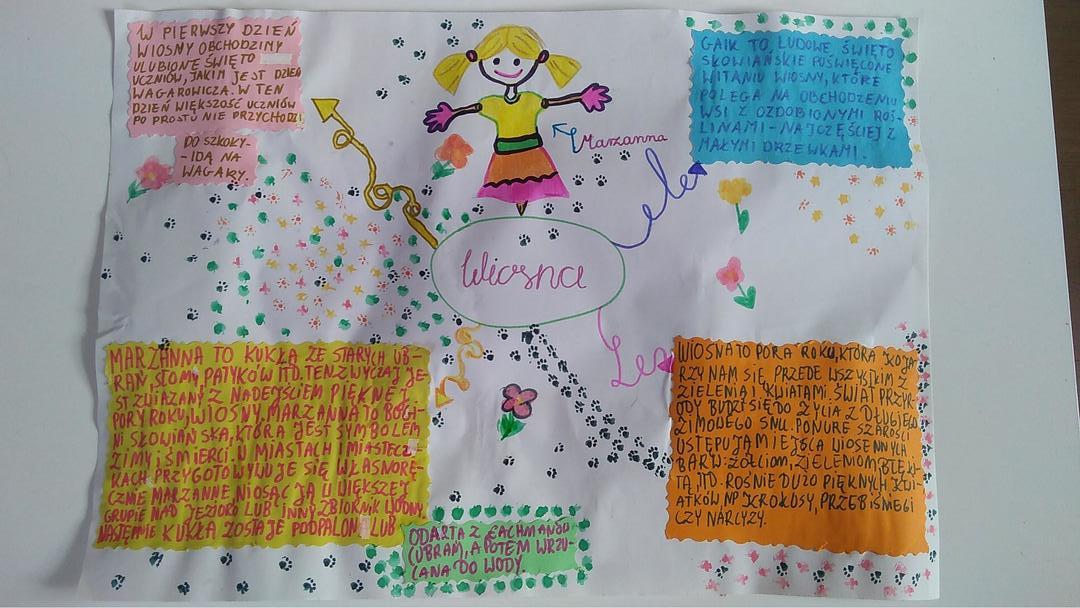 W PIERWSZY DZIEŃ
WIOSNY OBCHODZIMY
ULUBIONE ŚWIĘTO
UCZNIÓW, JAKIM JEST DZIEŃ
WAGAROWICZA. W TEN
DZIEŃ WIĘKSZOŚĆ UCZNIÓW
PO PROSTU NIE PRZYCHODZI
DO SZKOŁY-
-IDĄ NA
WAGARY.
Marzanna
GAIK TO LUDOWE ŚWIĘTO
SŁOWIAŃSKIE POŚWIĘCONE
WITANIU WIOSNY, KTÓRE
POLEGA NA OBCHODZENIU
WSI Z OZDOBIONYMI ROŚ-
LINAMI-NAJCZĘŚCIEJ Z
MAŁYMI DRZEWKAMI.
Wiosna
MARZANNA TO KUKŁA ZE STARYCH UB-
RAŃ, SŁOMY, PATYKÓW ITD. TEN ZWYCZAJ JE-
ST ZWIĄZANY Z NADEJŚCIEM PIĘKNEJ
PORY ROKU, WIOSNY. MARZANNA TO BOGI-
NI SŁOWIAŃSKA, KTÓRA JEST SYMBOLEM
ZIMY I ŚMIERCI. W MIASTACH I MIASTECZ-
KACH PRZYGOTOWYWUJE SIĘ WŁASNORĘ-
CZNIE MARZANNE, NIOSĄC JĄ W WIĘKSZEJ
GRUPIE NAD JEZIORO LUB INNY ZBIORNIK WODNY.
NASTĘPNIE KUKŁA ZOSTAJE PODPALONA LUB
ODARTA Z ŁACHMANÓW
(UBRAŃ), A POTEM WRZU-
CANA DO WODY.
WIOSNA TO PORA ROKU, KTÓRA KOJA
RZY NAM SIĘ PRZEDE WSZYSTKIM Z
ZIELENIĄ I KWIATAMI. ŚWIAT PRZYR-
ODY BUDZI SIĘ DO ŻYCIA Z DŁUGIEGO
ZIMOWEGO SNU. PONURE SZAROŚCI
USTĘPUJĄ MIEJSCA WIOSENNYCH
BARW: ŻÓŁCIOM, ZIELENIOM, BŁĘKI-
TĄ ITD. ROŚNIE DUŻO PIĘKNYCH KWI-
ATKÓW, NP. KROKUSY, PRZEBIŚNIEGI
CZY NARCYZY.